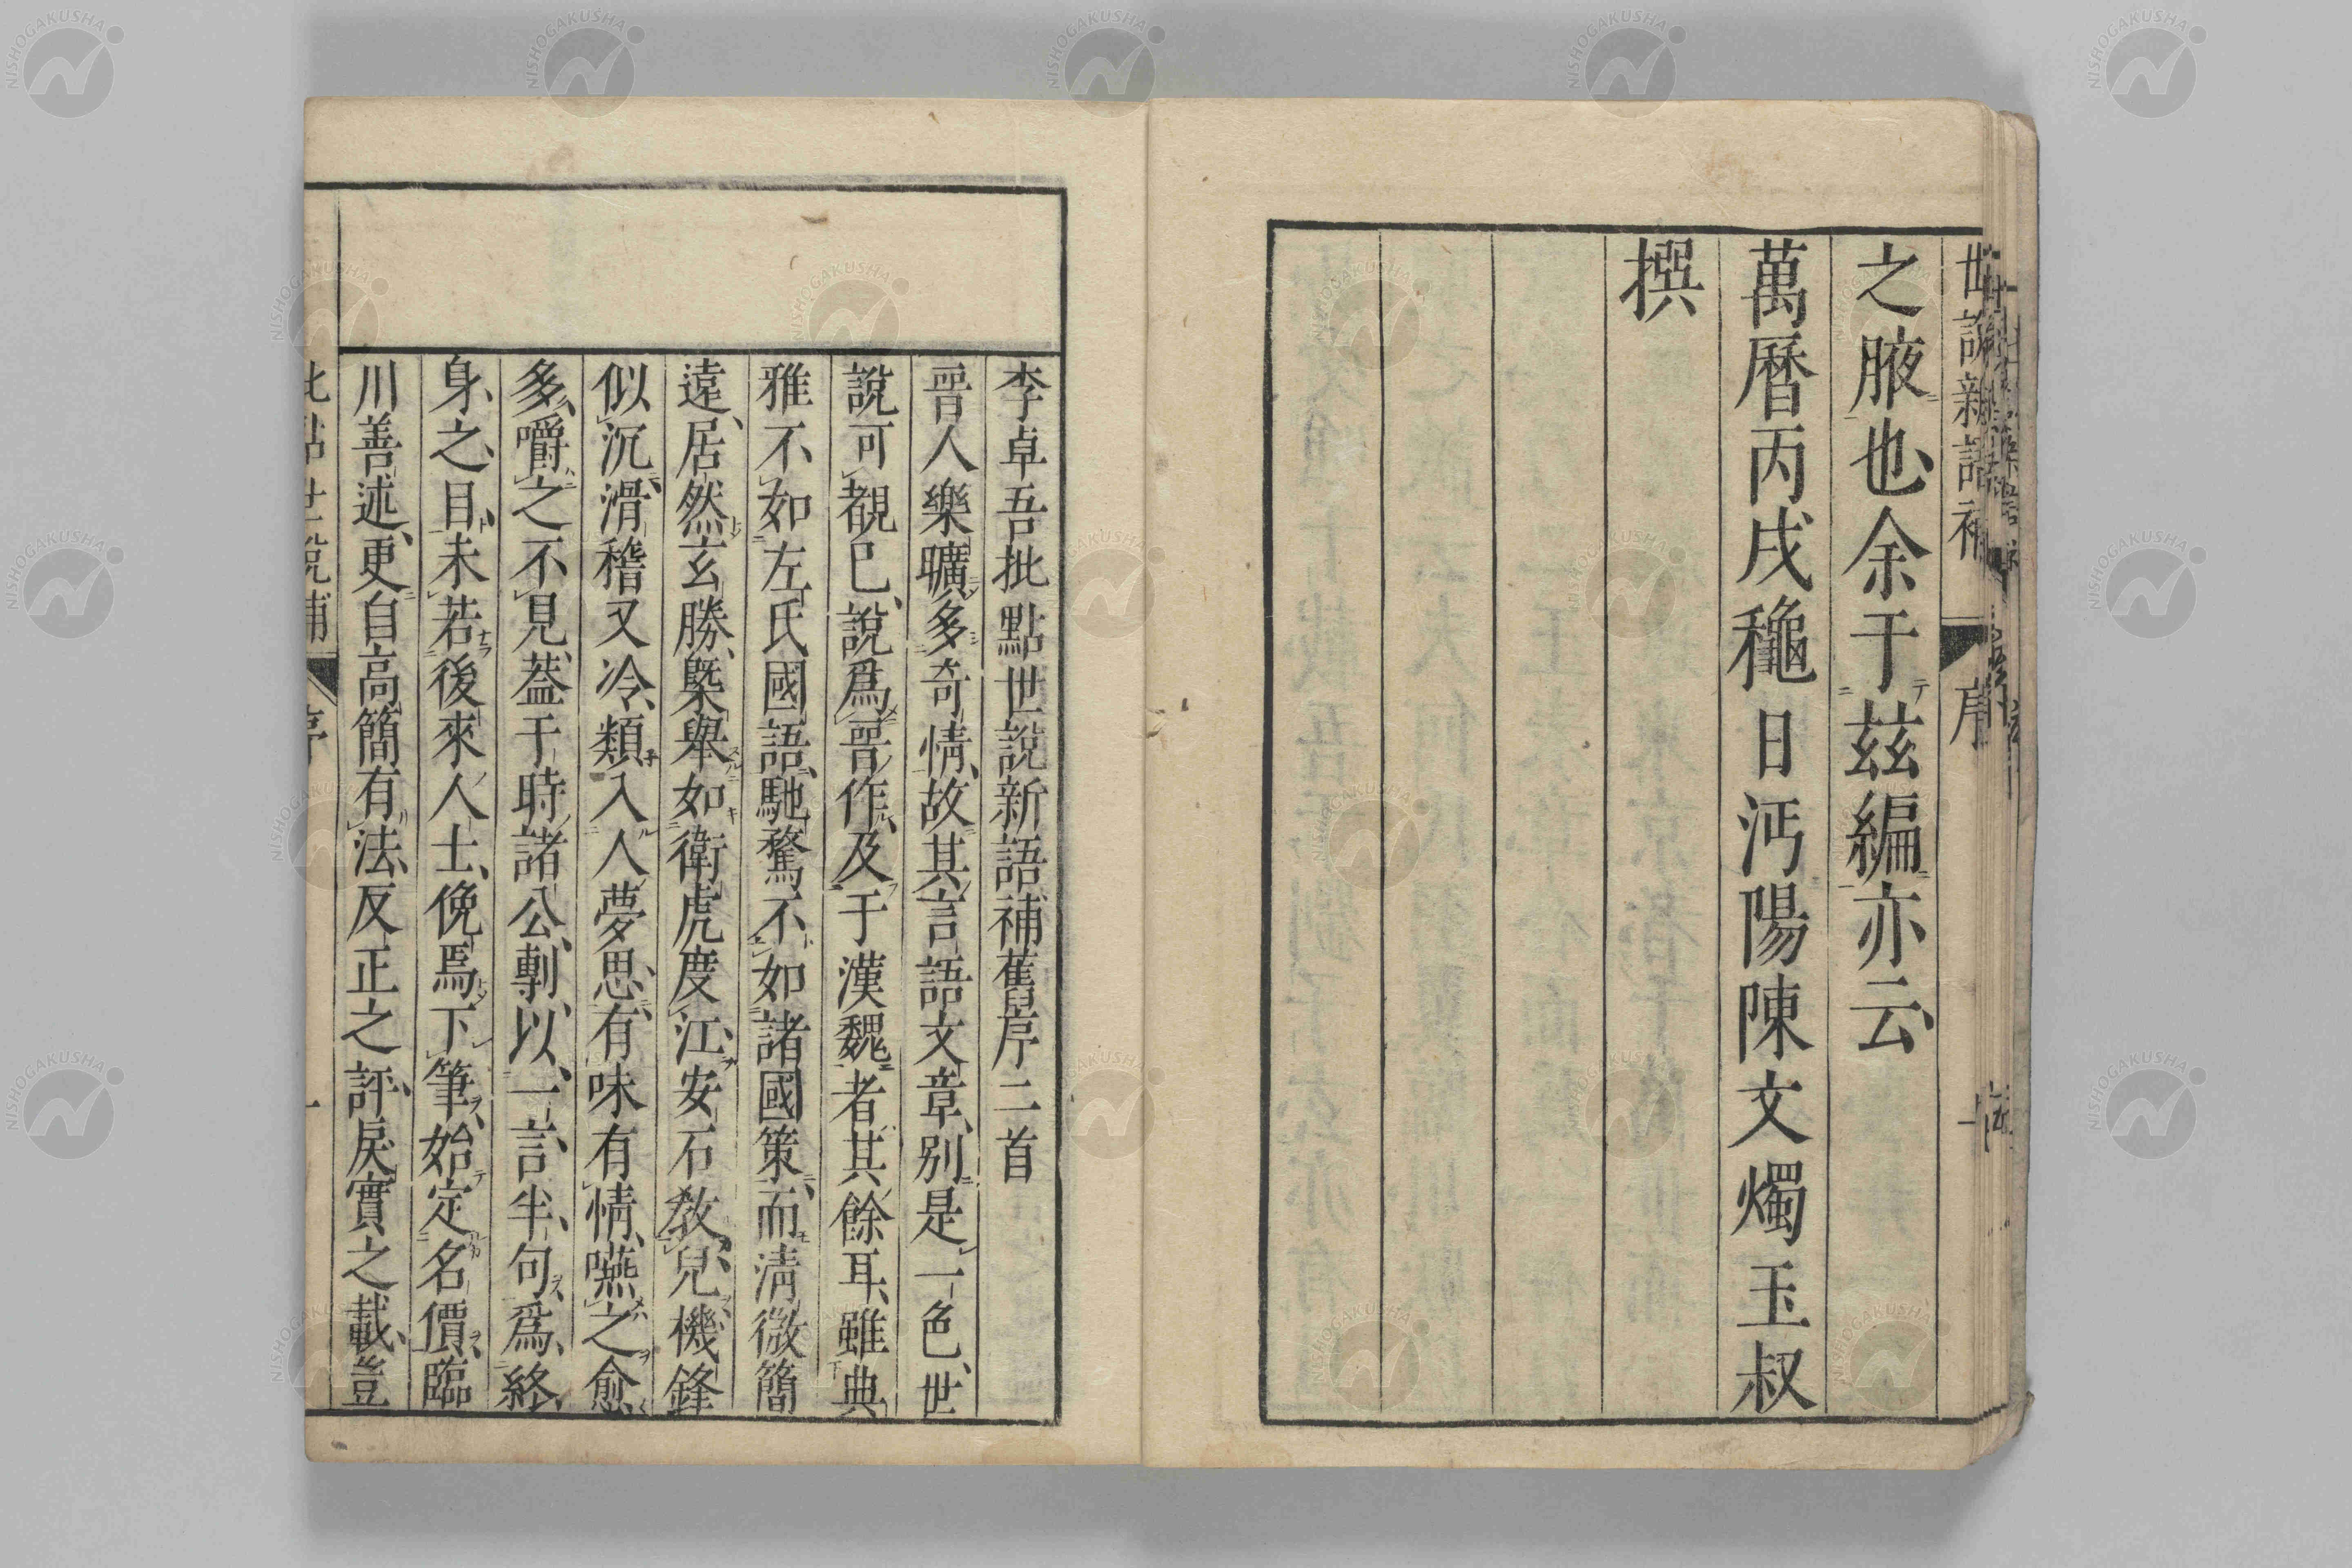 世說新語補 序
之腋也余于玆編亦云
萬曆丙戌穐日沔陽陳文燭玉叔
撰
李卓吾批點世說新語補舊序二首
晉人樂曠多奇情故其言語文章別是一色世
說可覩已說爲晉作及于漢魏者其餘耳雖典
雅不如左氏國語馳騖不如諸國策而淸微簡
遠居然玄勝槩舉如衛虎度江安石敎兒機鋒
似沉滑稽又冷類入人夢思有味有情嚥之愈
多嚼之不見葢于時諸公剸以一言半句爲終
身之目未若後來人士俛焉下筆始定名價臨
川善述更自高簡有法反正之評戾實之載豈
批點世說補 序 一
NISHOGAKUSHA